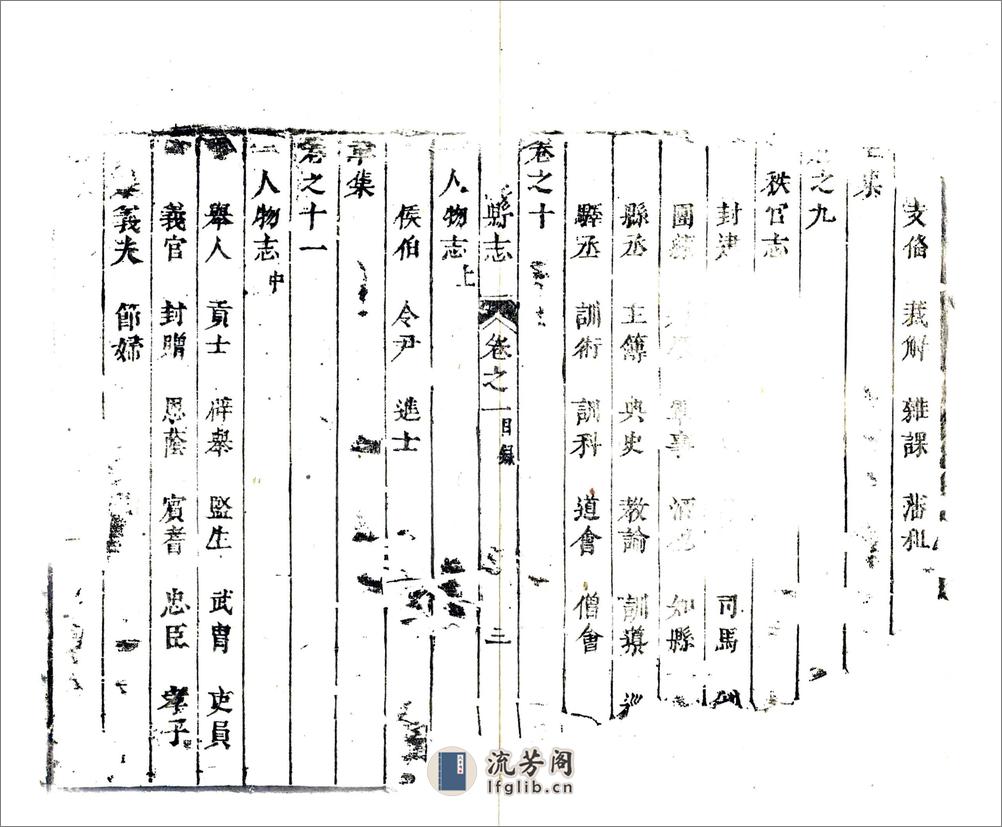 支俻 裁解 雜課 藩租
集
之九
秩官志
封建 司馬
團練 軍事 知縣
縣丞 主簿 典史 教諭 訓導 巡
驛丞 訓術 訓科 道會 僧會
卷之十
縣志 卷之一 目録 三
人物志上
侯伯 令尹 進士
集
卷之十一
人物志中
舉人 貢士 辟舉 監生 武胄 吏員
義官 封贈 恩蔭 賓耆 忠臣 孝子
義夫 節婦
流芳阁
lfglib.cn